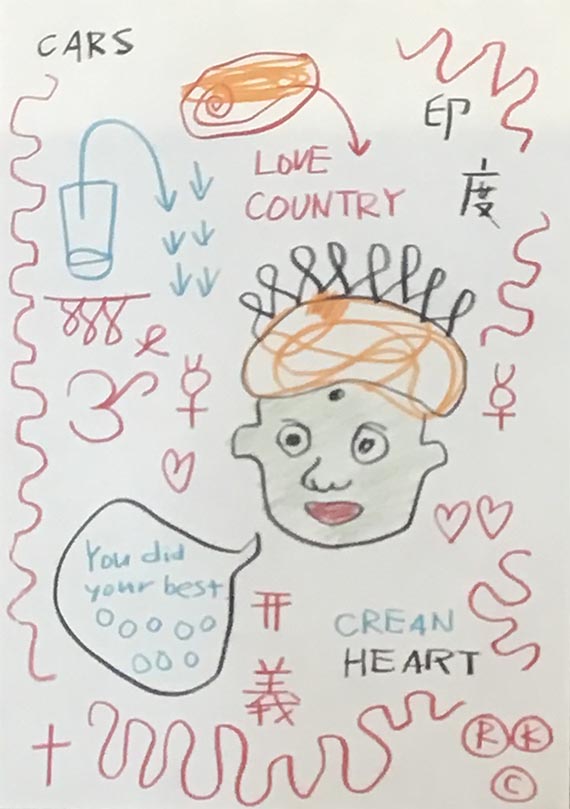 CARS
印
度
LOVE
COUNTRY
You did
your best
CREAN
HEART
義
R K
C